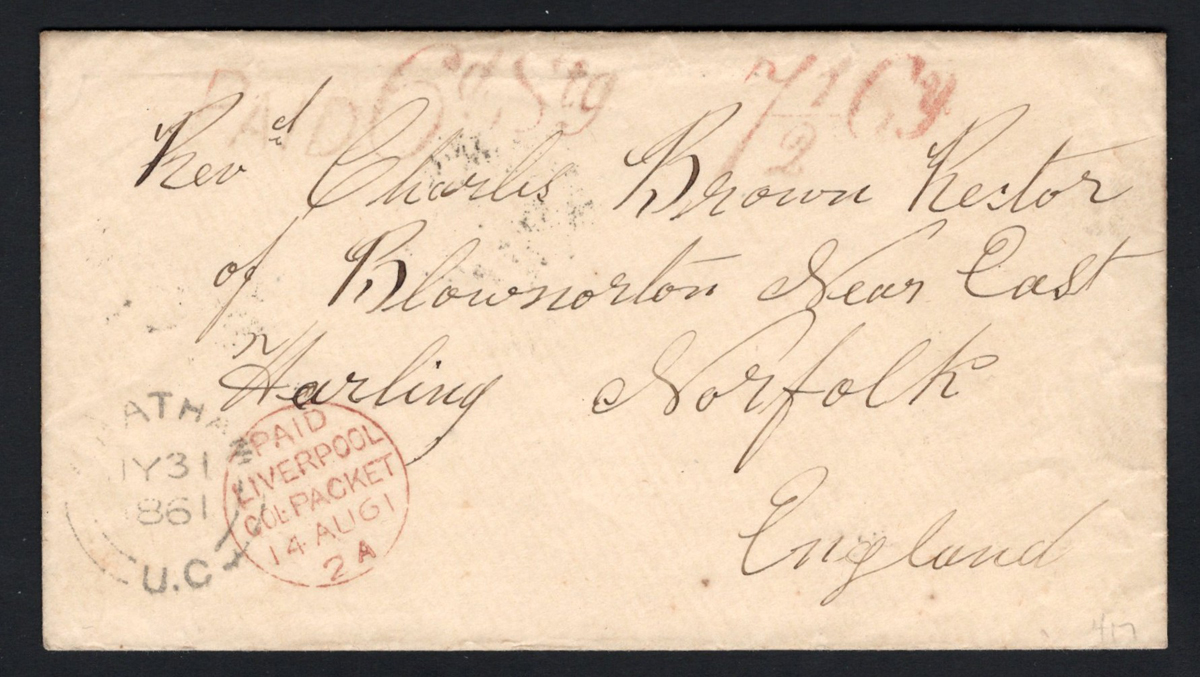 PAID 6d Stg 7½ Cy
Revd Charles Brown Rector
of Blownorton Near East
Harling Norfolk
England
ATHAM
JY 31
1861
U.C
PAID
LIVERPOOL
COL. PACKET
14 AU 61
2 A
4/17